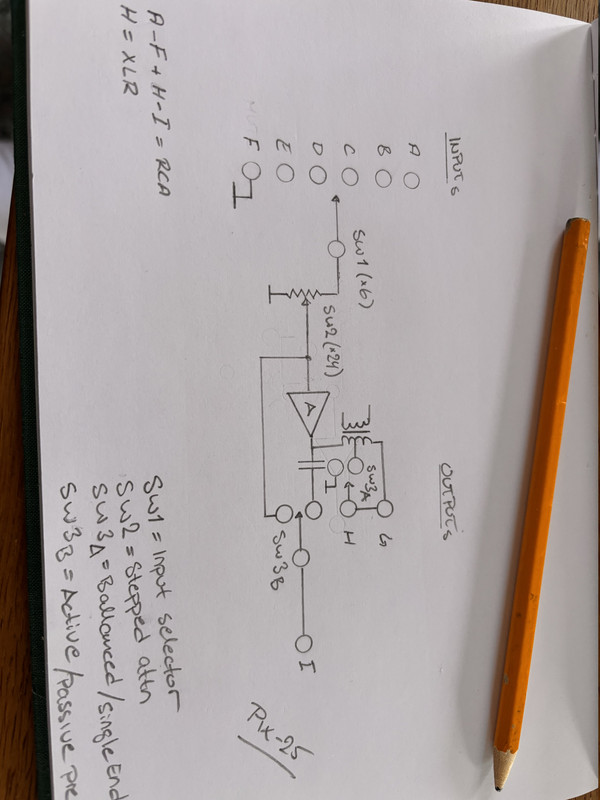 INPUTS
OUTPUTS
A
B
C
D
E
F
SW1 (x6)
SW2 (x24)
A
SW3A
G
H
SW3B
I
Pix-25
A-F + H-I = RCA
H = XLR
SW1 = Input selector
SW2 = Stepped attn
SW3A = Ballanced/single End
SW3B = Active/Passive pre